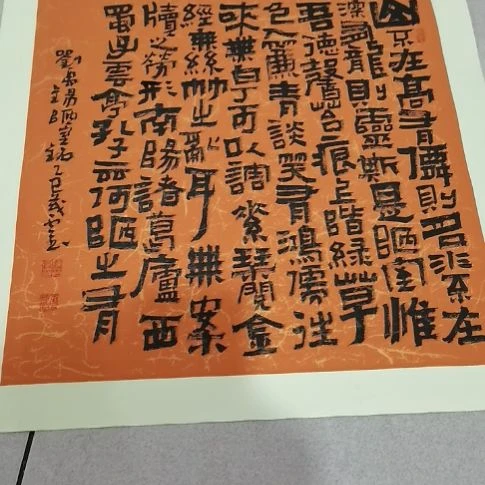 山不在高有僊則名水不在
深有龍則靈斯是陋室惟
吾德馨苔痕上階緑草
色入簾青談笑有鴻儒往
來無白丁可以調素琴閱金
經無絲竹之亂耳無案
牘之勞形南陽諸葛廬西
蜀子雲亭孔子云何陋之有
劉禹錫陋室銘乙巳歲